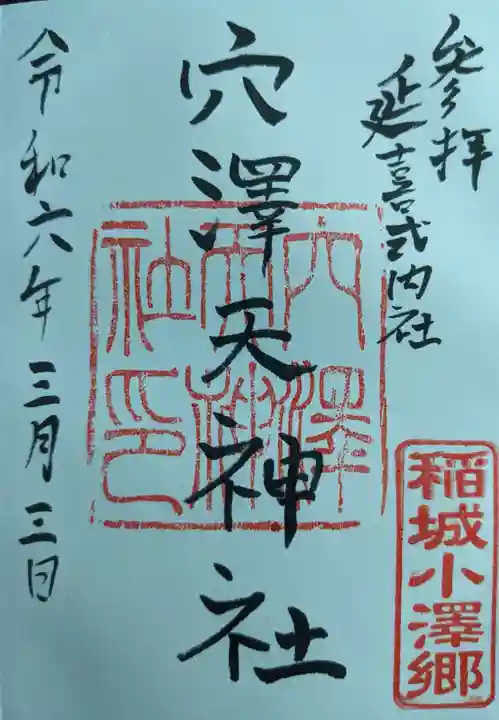 參拝
延喜式内社
穴澤天神社
穴澤天神社印
令和六年三月三日
稲城小澤郷